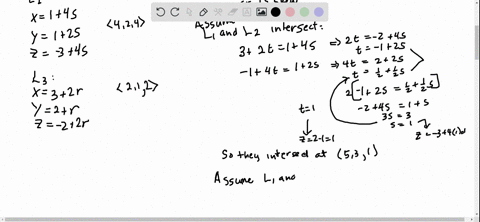 x = 1+4s
y = 1+2s
z = -3+4s
<4,2,4>
L3:
x = 3+2r
y = 2+r
z = -2+2r
<2,1,2>
Assume
L1 and L2 intersect:
3+2t = 1+4s ⇒ 2t = -2+4s
t = -1+2s
-1+4t = 1+2s ⇒ 4t = 2+2s
t = ½+½s
2[-1+2s = ½+½s]
-2+4s = 1+s
3s = 3
s = 1
t=1
z=2-1=1
z=-3+4(1)=1
So they intersect at (5,3,1)
Assume L1 and